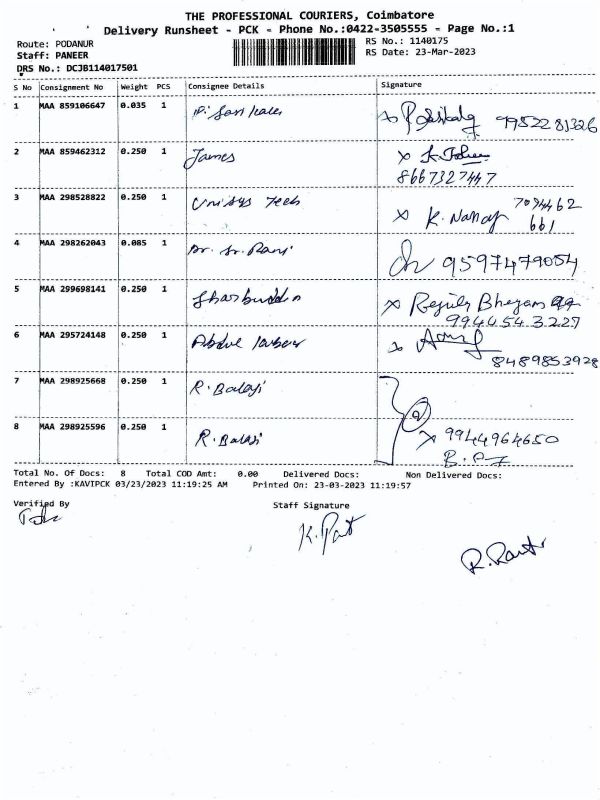 THE PROFESSIONAL COURIERS, Coimbatore
Delivery Runsheet - PCK - Phone No.:0422-3505555 - Page No.:1
Route: PODANUR
RS No.: 1140175
Staff: PANEER
RS Date: 23-Mar-2023
DRS No.: DCJB114017501
S No Consignment No Weight PCS Consignee Details Signature
1 MAA 859106647 0.035 1 9952281326
2 MAA 859462312 0.250 1 James x
8667327447
3 MAA 298528822 0.250 1 Unisys Tech 7094462
x K. 661
4 MAA 298262043 0.085 1 9597479054
5 MAA 299698141 0.250 1 x Begum
9944543227
6 MAA 295724148 0.250 1 Abdul x
8489853928
7 MAA 298925668 0.250 1 R. Balaji
8 MAA 298925596 0.250 1 R. Balaji x 9944964650
Total No. Of Docs: 8 Total COD Amt: 0.00 Delivered Docs: Non Delivered Docs:
Entered By :KAVIPCK 03/23/2023 11:19:25 AM Printed On: 23-03-2023 11:19:57
Verified By Staff Signature